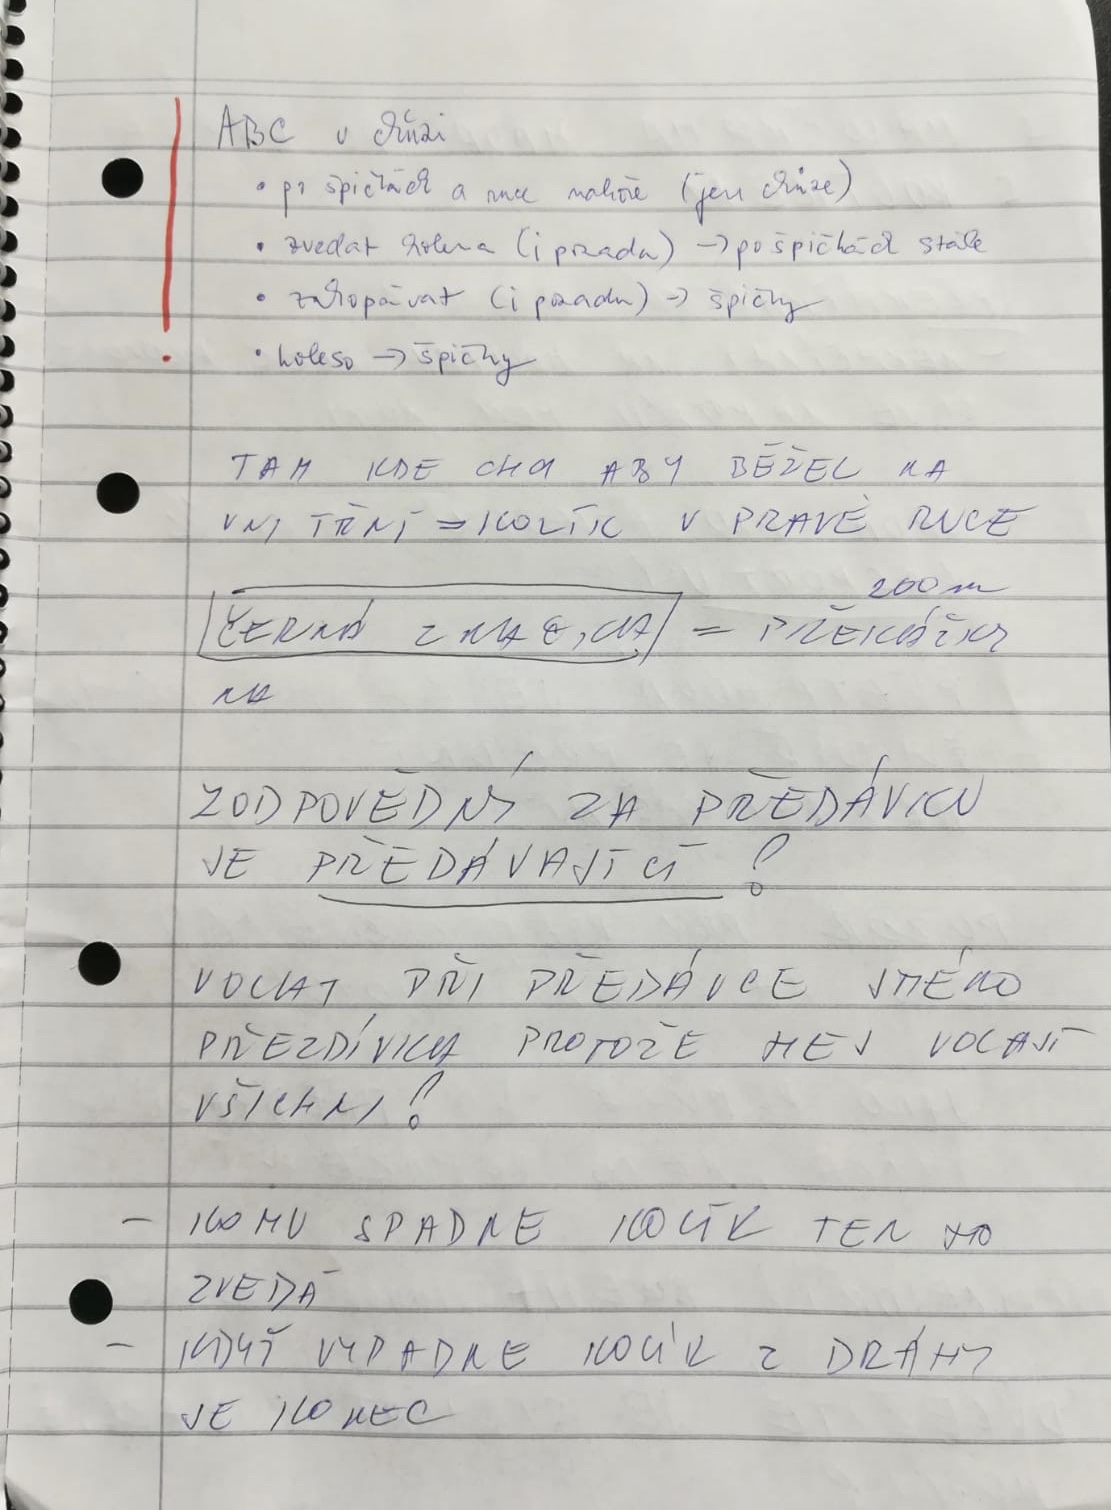 ABC v chůzi
• po špičkách a ruce nahoře (jen chůze)
• zvedat kolena (i pozadu) → po špičkách stále
• zakopávat (i pozadu) → špičky
• koleso → špičky
TAM KDE CHCI ABY BĚŽEL NA
VNITŘNÍ = KOLÍK V PRAVÉ RUCE
200 m
ČERNÁ = PŘEKÁŽKY
NA
ZODPOVĚDNÝ ZA PŘEDÁVKU
JE PŘEDÁVAJÍCÍ !
VOLAT PŘI PŘEDÁVCE JMÉNO
PŘEZDÍVKA PROTOŽE HEJ VOLAJÍ
VŠICHNI !
- KOMU SPADNE KOLÍK TEN HO
ZVEDÁ
- KDYŽ VYPADNE KOLÍK Z DRÁHY
JE KONEC